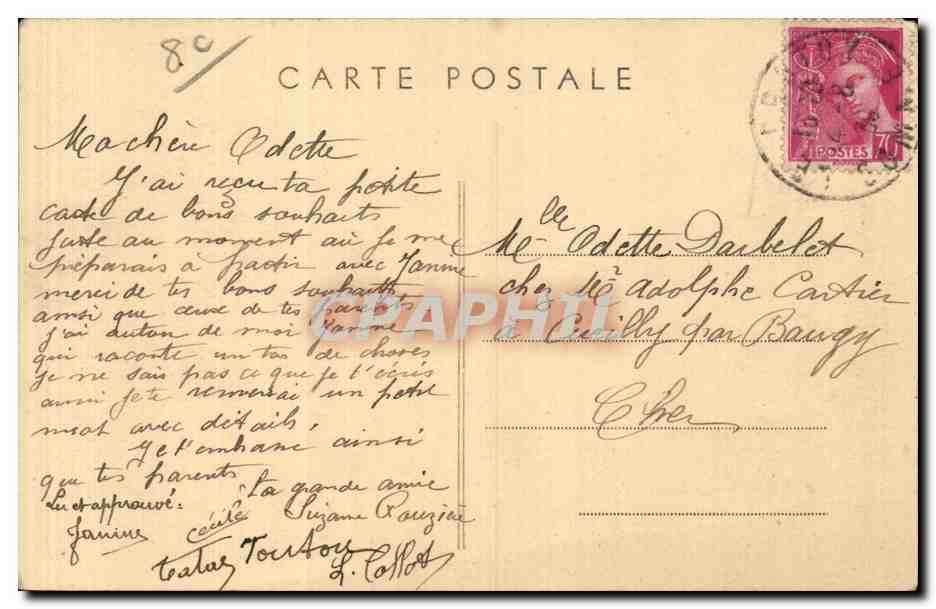 8c
CARTE POSTALE
POSTES 70
Ma chère Odette
J'ai reçu ta petite
carte de bons souhaits
juste au moment où je me
préparais à partir avec Janine
merci de tes bons souhaits
ainsi que ceux de tes parents
j'ai autour de moi Janine
qui raconte un tas de choses
je ne sais pas ce que je t'écris
aussi je te remerciai un petit
mot avec détails.
Je t'embrasse ainsi
que tes parents
Ta grande amie
Suzane Rouzière
Lu et approuvé:
Janine
Toutou
L. Collot
Melle Odette Darbelet
chez Mr Adolphe Cartier
à Civilly par Baugy
Cher
CPAPHIL